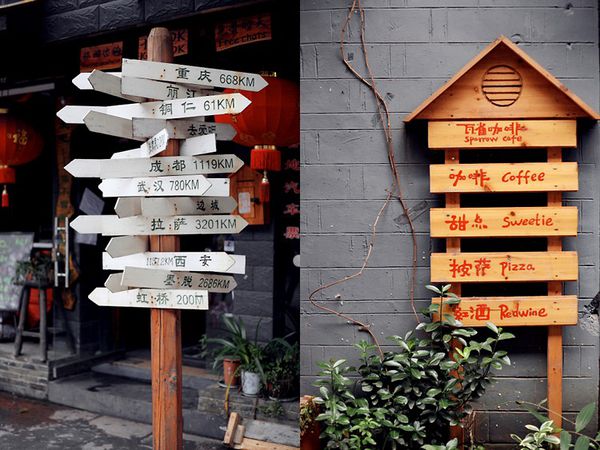 Free chats
重庆 668KM
丽江
铜仁 61KM
成都 1119KM
武汉 780KM
边城
拉萨 3201KM
西安
墨脱 2686KM
虹桥 200M
瓦雀咖啡
Sparrow cafe
咖啡 Coffee
甜点 Sweetie
披萨 Pizza
红酒 Redwine